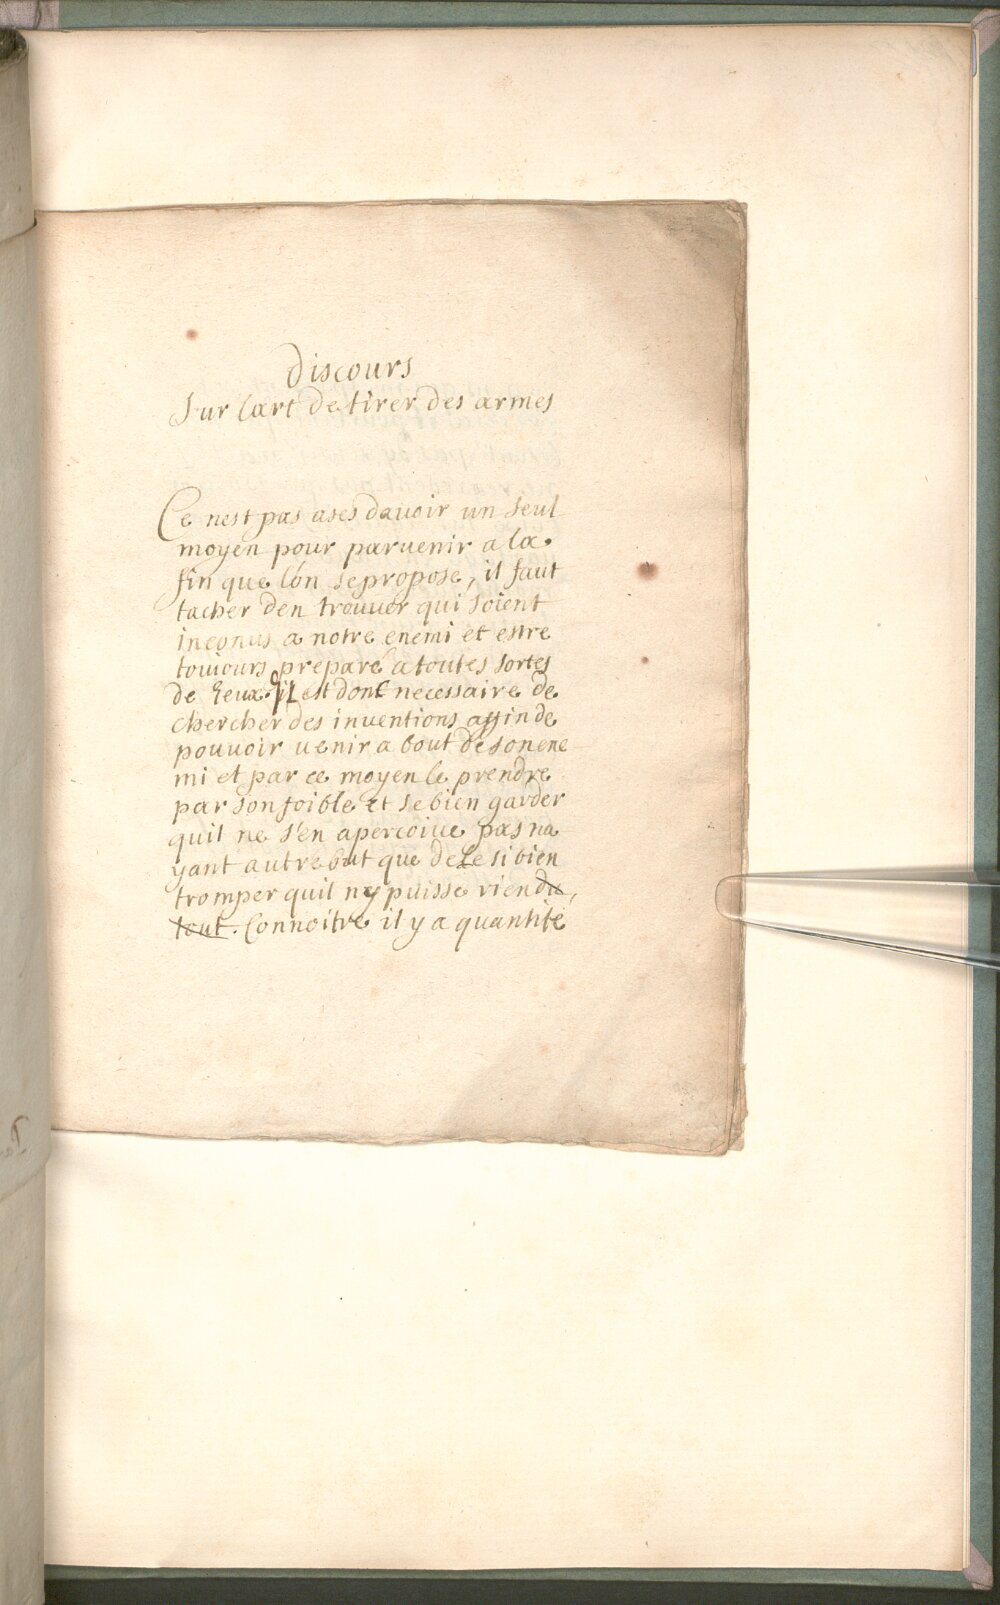 Discours
Sur lart de tirer des armes
Ce nest pas ases davoir un seul
moyen pour parvenir a la
fin que l'on se propose, il faut
tacher den trouver qui soient
inconus a notre enemi et estre
toujours preparé a toutes sortes
de jeux il est donc necessaire de
chercher des inventions affin de
pouvoir venir a bout de son ene
mi et par ce moyen le prendre
par son foible et se bien garder
quil ne s'en apercoive pas na
yant autre but que de le si bien
tromper quil ny puisse rien du
tout. Connoitre il y a quantité